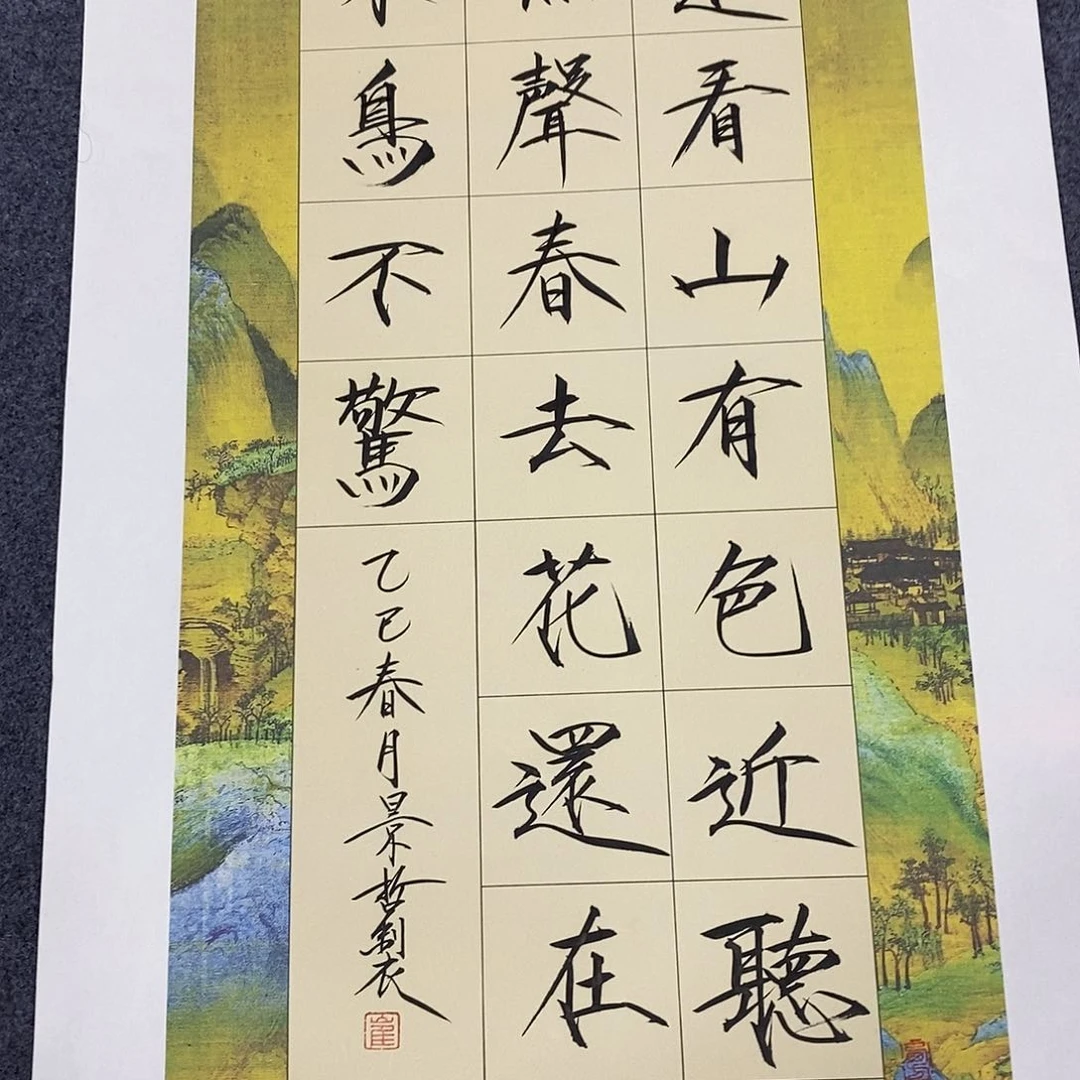 看山有色近聽
聲春去花還在
鳥不驚
乙巳春月景哲製
崔